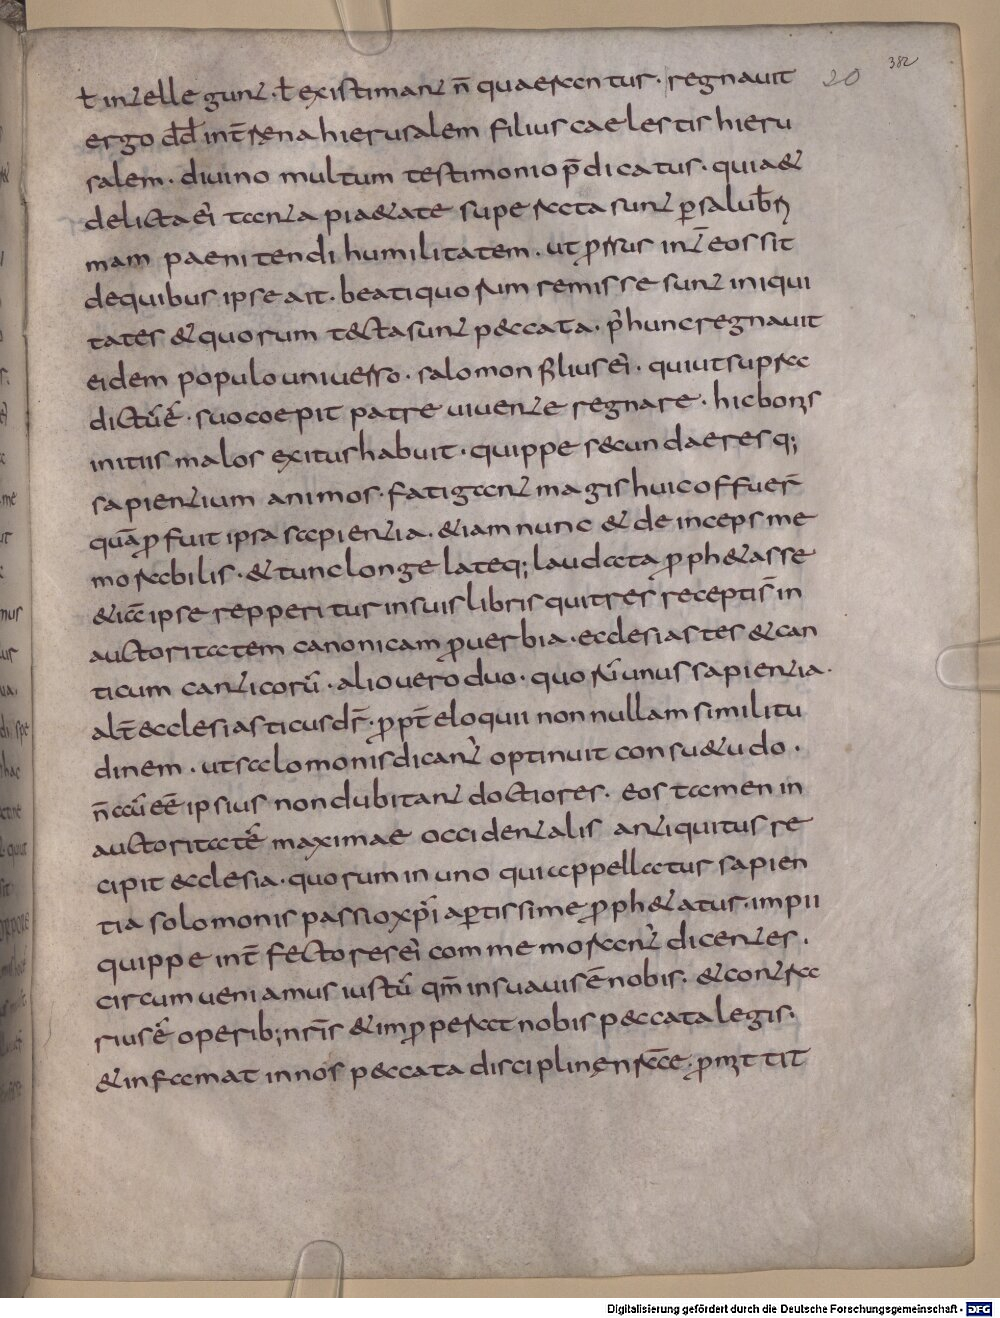 382
20
ł intellegunt · ł existimant n̄ quaerantur · regnauit
ergo dđ int̄rena hierusalem filius caelestis hieru
salem · diuino multum testimonio p̄dicatus · quia &
delicta ei' tanta pi&ate superata sunt ꝑ saluƀri
mam paenitendi humilitatem · ut ꝓrsus int̄ eos sit
de quibus ipse ait · beati quorum remisse sunt iniqui
tates & quorum tecta sunt peccata · p' hunc regnauit
eidem populo uniuerso · salomon filius ei' · qui ut supra
dictū ē · suo coepit patre uiuente regnare · hic bonis
initiis malos exitus habuit · quippe secundae res q;
sapientium animos · fatigant magis huic offuer̄
quā ꝓfuit ipsa sapientia · & iam nunc & deinceps me
morabilis · & tunc longe lateq; laudata ꝓph&asse
& iā ipse repperitur in suis libris qui tres recepti s̄ in
auctoritatem canonicam ꝓuerbia · ecclesiastes & can
ticum canticorū · alio uero duo · quorū unus sapientia ·
alt̄ ecclesiasticus dr̄ · ꝓpt̄ eloquii nonnullam similitu
dinem · ut salomonis dicant' optinuit consu&udo ·
n̄ aū eē ipsius non dubitant doctiores · eos tamen in
auctoritatē maximae occidentalis antiquitus re
cipit ecclesia · quorum in uno qui appellatur sapien
tia solomonis passio xp̄i aꝑtissime ꝓph&atur · impii
quippe int̄fectores ei' commemorant' dicentes ·
circumueniamus iustū qm̄ insuauis ē nobis · & contra
rius ē operib; nr̄is & imꝓperat nobis peccata legis ·
& infamat in nos peccata disciplinę nr̄ae · ꝓmittit
Digitalisierung gefördert durch die Deutsche Forschungsgemeinschaft · DFG